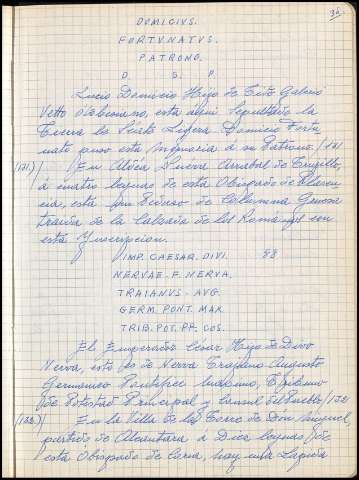 36
DVMICIVS.
FORTVNATVS.
PATRONO.
D. S. P.
Lucio Domicio Hijo de Tito Galerio
Vetto está aquí sepultado la
tierra le Ligera Domicio Fortu
nato puso esta memoria a su Patrono /131
(131)/ En Aldea Nueva Arrabal de Trugillo,
á cuatro leguas de esta Obispado de Plasen
cia, está un Pedaso de Columna
traida de la Calsada de los Romanos con
esta Ynscripcion.
IMP. CAESAR. DIVI. 88
NERVAE. F. NERVA.
TRAIANVS. AVG.
GERM. PONT. MAX.
TRIB. POT. PP. COS.
El Emperador César Hijo de Divo
Nerva, esto es de Nerva Trajano Augusto
Germanico Pontifice Maximo, Tribuno
de Potestad Principal y Consul /132
(132)/ En la Villa de la Torre de Dón Miguel,
partido de Alcantara á Diez leguas de
esta Obispado de Coria, hay una Lapida